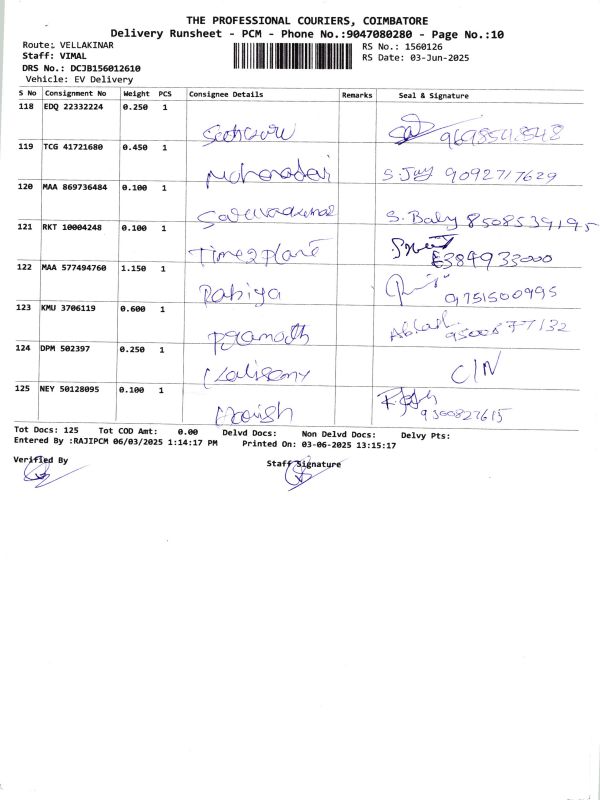 THE PROFESSIONAL COURIERS, COIMBATORE
Delivery Runsheet - PCM - Phone No.:9047080280 - Page No.:10
Route: VELLAKINAR
RS No.: 1560126
Staff: VIMAL
RS Date: 03-Jun-2025
DRS No.: DCJB156012610
Vehicle: EV Delivery
S No Consignment No Weight PCS Consignee Details Remarks Seal & Signature
118 EDQ 22332224 0.250 1
119 TCG 41721680 0.450 1
S. Jay 9092717629
120 MAA 869736484 0.100 1
S. Baby 8508539195
121 RKT 10004248 0.100 1
Time2Plane
122 MAA 577494760 1.150 1
Rabiya 9751500995
123 KMU 3706119 0.600 1
Pramodh
124 DPM 502397 0.250 1
C/N
125 NEY 50128095 0.100 1
Harish 9300827615
Tot Docs: 125 Tot COD Amt: 0.00 Delvd Docs: Non Delvd Docs: Delvy Pts:
Entered By :RAJIPCM 06/03/2025 1:14:17 PM Printed On: 03-06-2025 13:15:17
Verified By Staff Signature